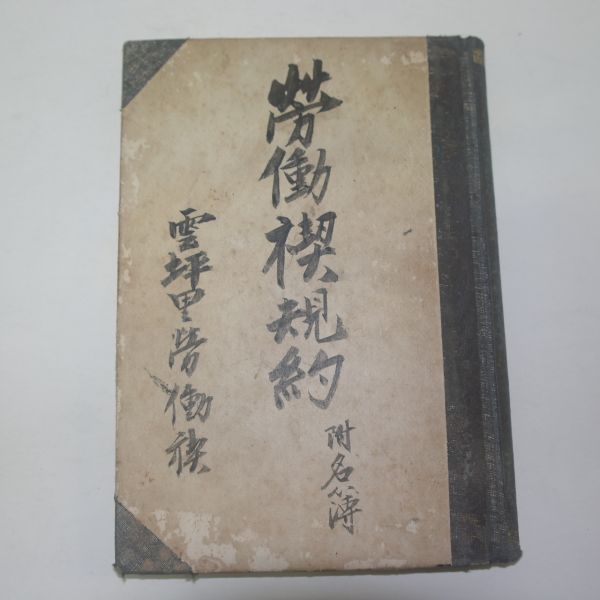 勞働禊規約
附名簿
雲坪里勞働禊